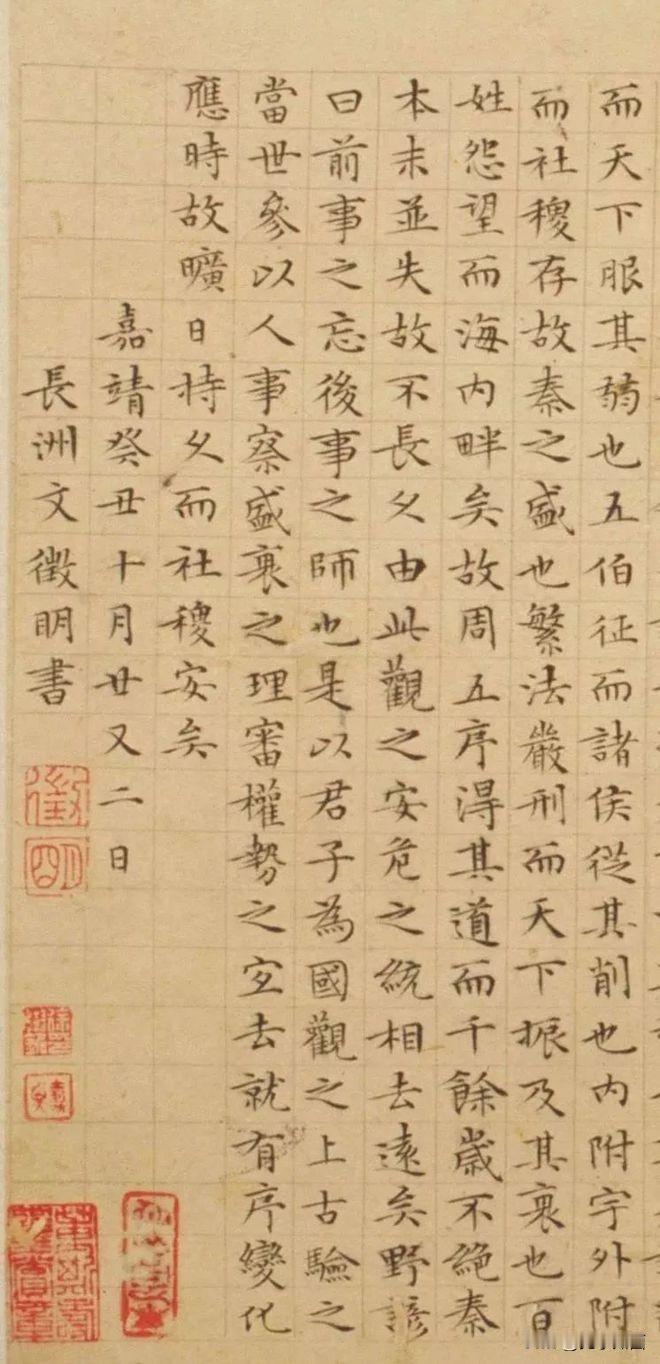 而天下服其弱也五伯征而諸侯從其削也内附宇外附
而社稷存故秦之盛也繁法嚴刑而天下振及其衰也百
姓怨望而海内畔矣故周五序得其道而千餘歲不絶秦
本末並失故不長久由此觀之安危之統相去遠矣野諺
曰前事之忘後事之師也是以君子為國觀之上古驗之
當世參以人事察盛衰之理審權勢之宜去就有序變化
應時故曠日持久而社稷安矣
嘉靖癸丑十月廿又二日
長洲文徵明書
徵明